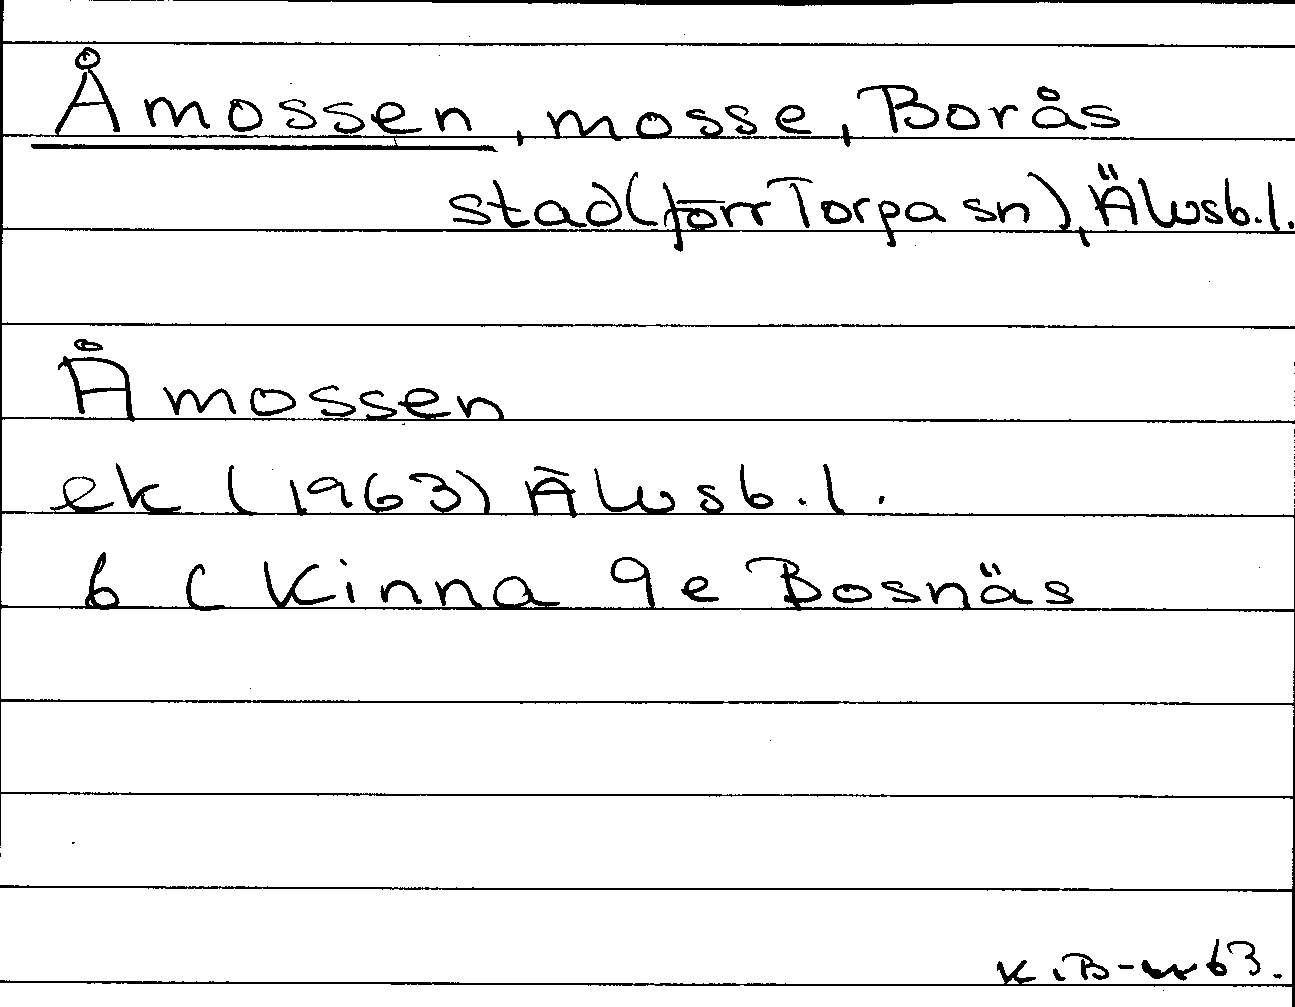 Åmossen, mosse, Borås
stad (förr Torpa sn), Älvsb.l.
Åmossen
ek (1963) Älvsb.l.
6 C Kinna 9e Bosnäs
K.B-
63.